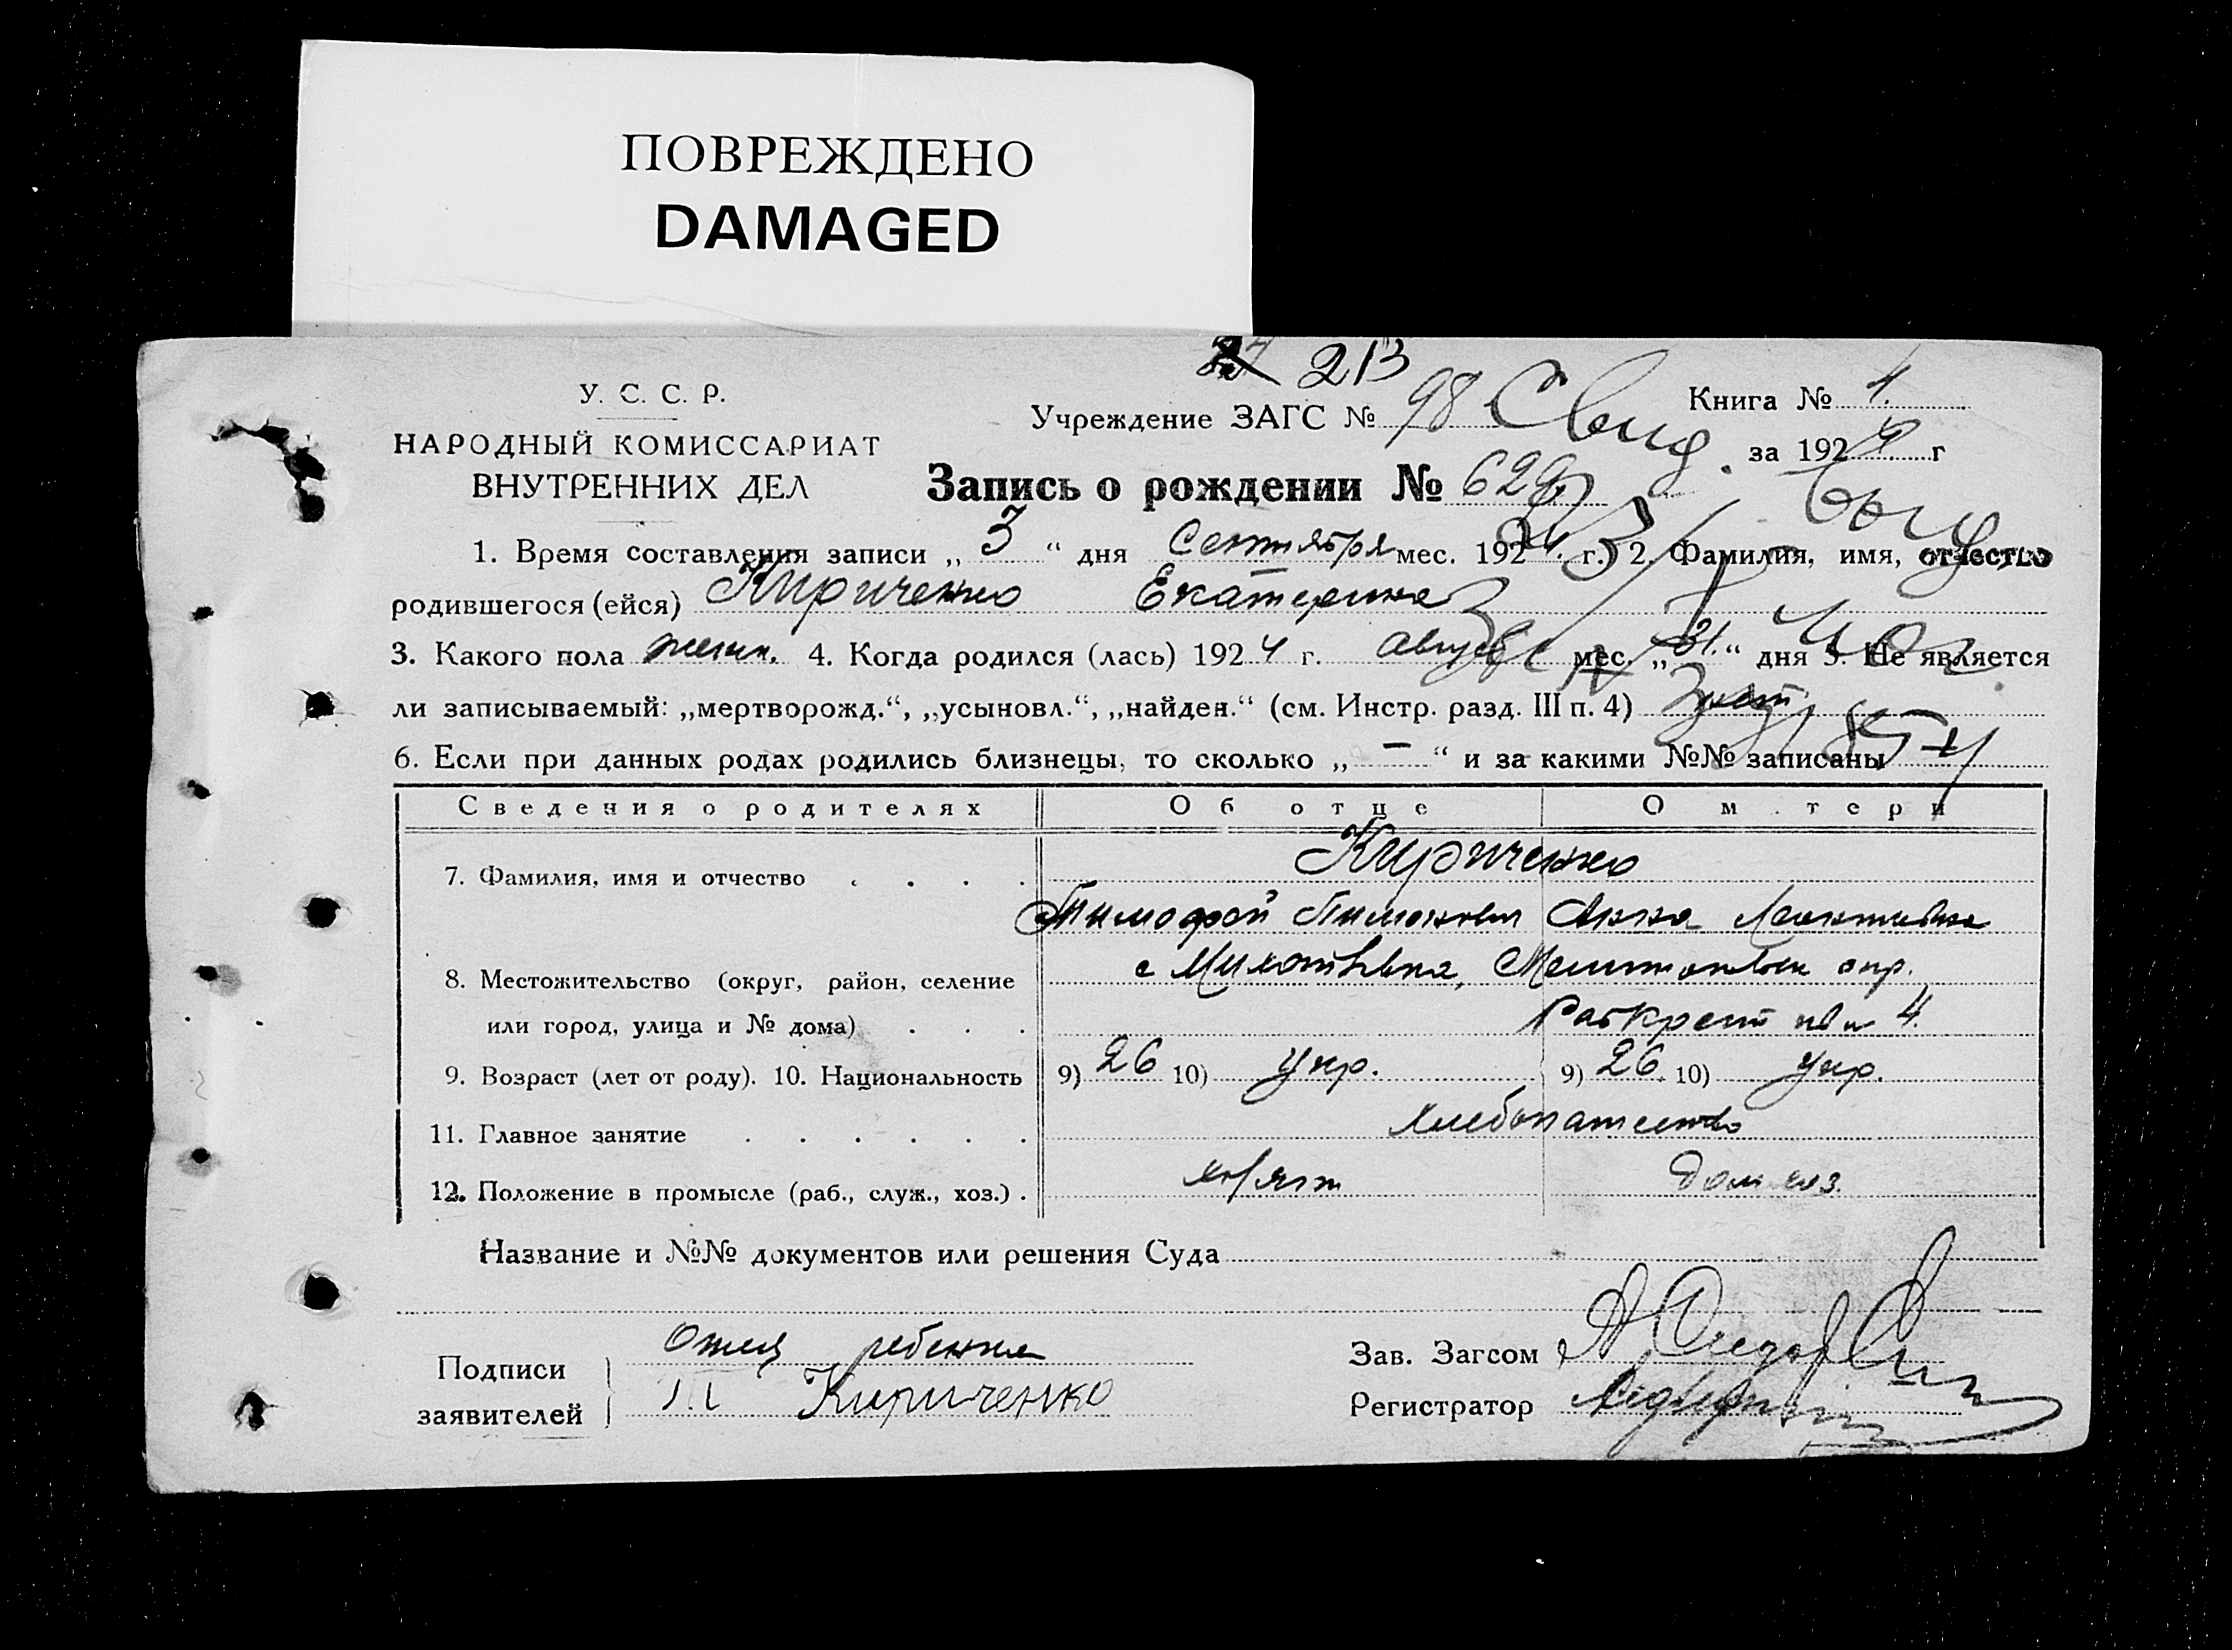 ПОВРЕЖДЕНО
DAMAGED
213
У. С. С. Р.
НАРОДНЫЙ КОМИССАРИАТ
ВНУТРЕННИХ ДЕЛ
Учреждение ЗАГС № 98 Свид.
Книга № 4.
за 1924 г
Запись о рождении № 629
1. Время составления записи „ 3 “ дня Сентября мес. 1924. г. 2. Фамилия, имя, отчество
родившегося (ейся) Кириченко Екатерина
3. Какого пола женск. 4. Когда родился (лась) 1924 г. август мес. „ 31. “ дня 5. Не является
ли записываемый: „мертворожд.“, „усыновл.“, „найден.“ (см. Инстр. разд. III п. 4)
6. Если при данных родах родились близнецы, то сколько „ — “ и за какими №№ записаны
Сведения о родителях Об отце О м.тери
7. Фамилия, имя и отчество . . . . Кириченко
Тимофей Анна
8. Местожительство (округ, район, селение с
или город, улица и № дома) . . . 4.
9. Возраст (лет от роду). 10. Национальность 9) 26 10) укр. 9) 26. 10) укр.
11. Главное занятие . . . . . . хлебопашество
12. Положение в промысле (раб., служ., хоз.) . дом хоз.
Название и №№ документов или решения Суда
Подписи заявителей Отец ребенка
Кириченко
Зав. Загсом
Регистратор